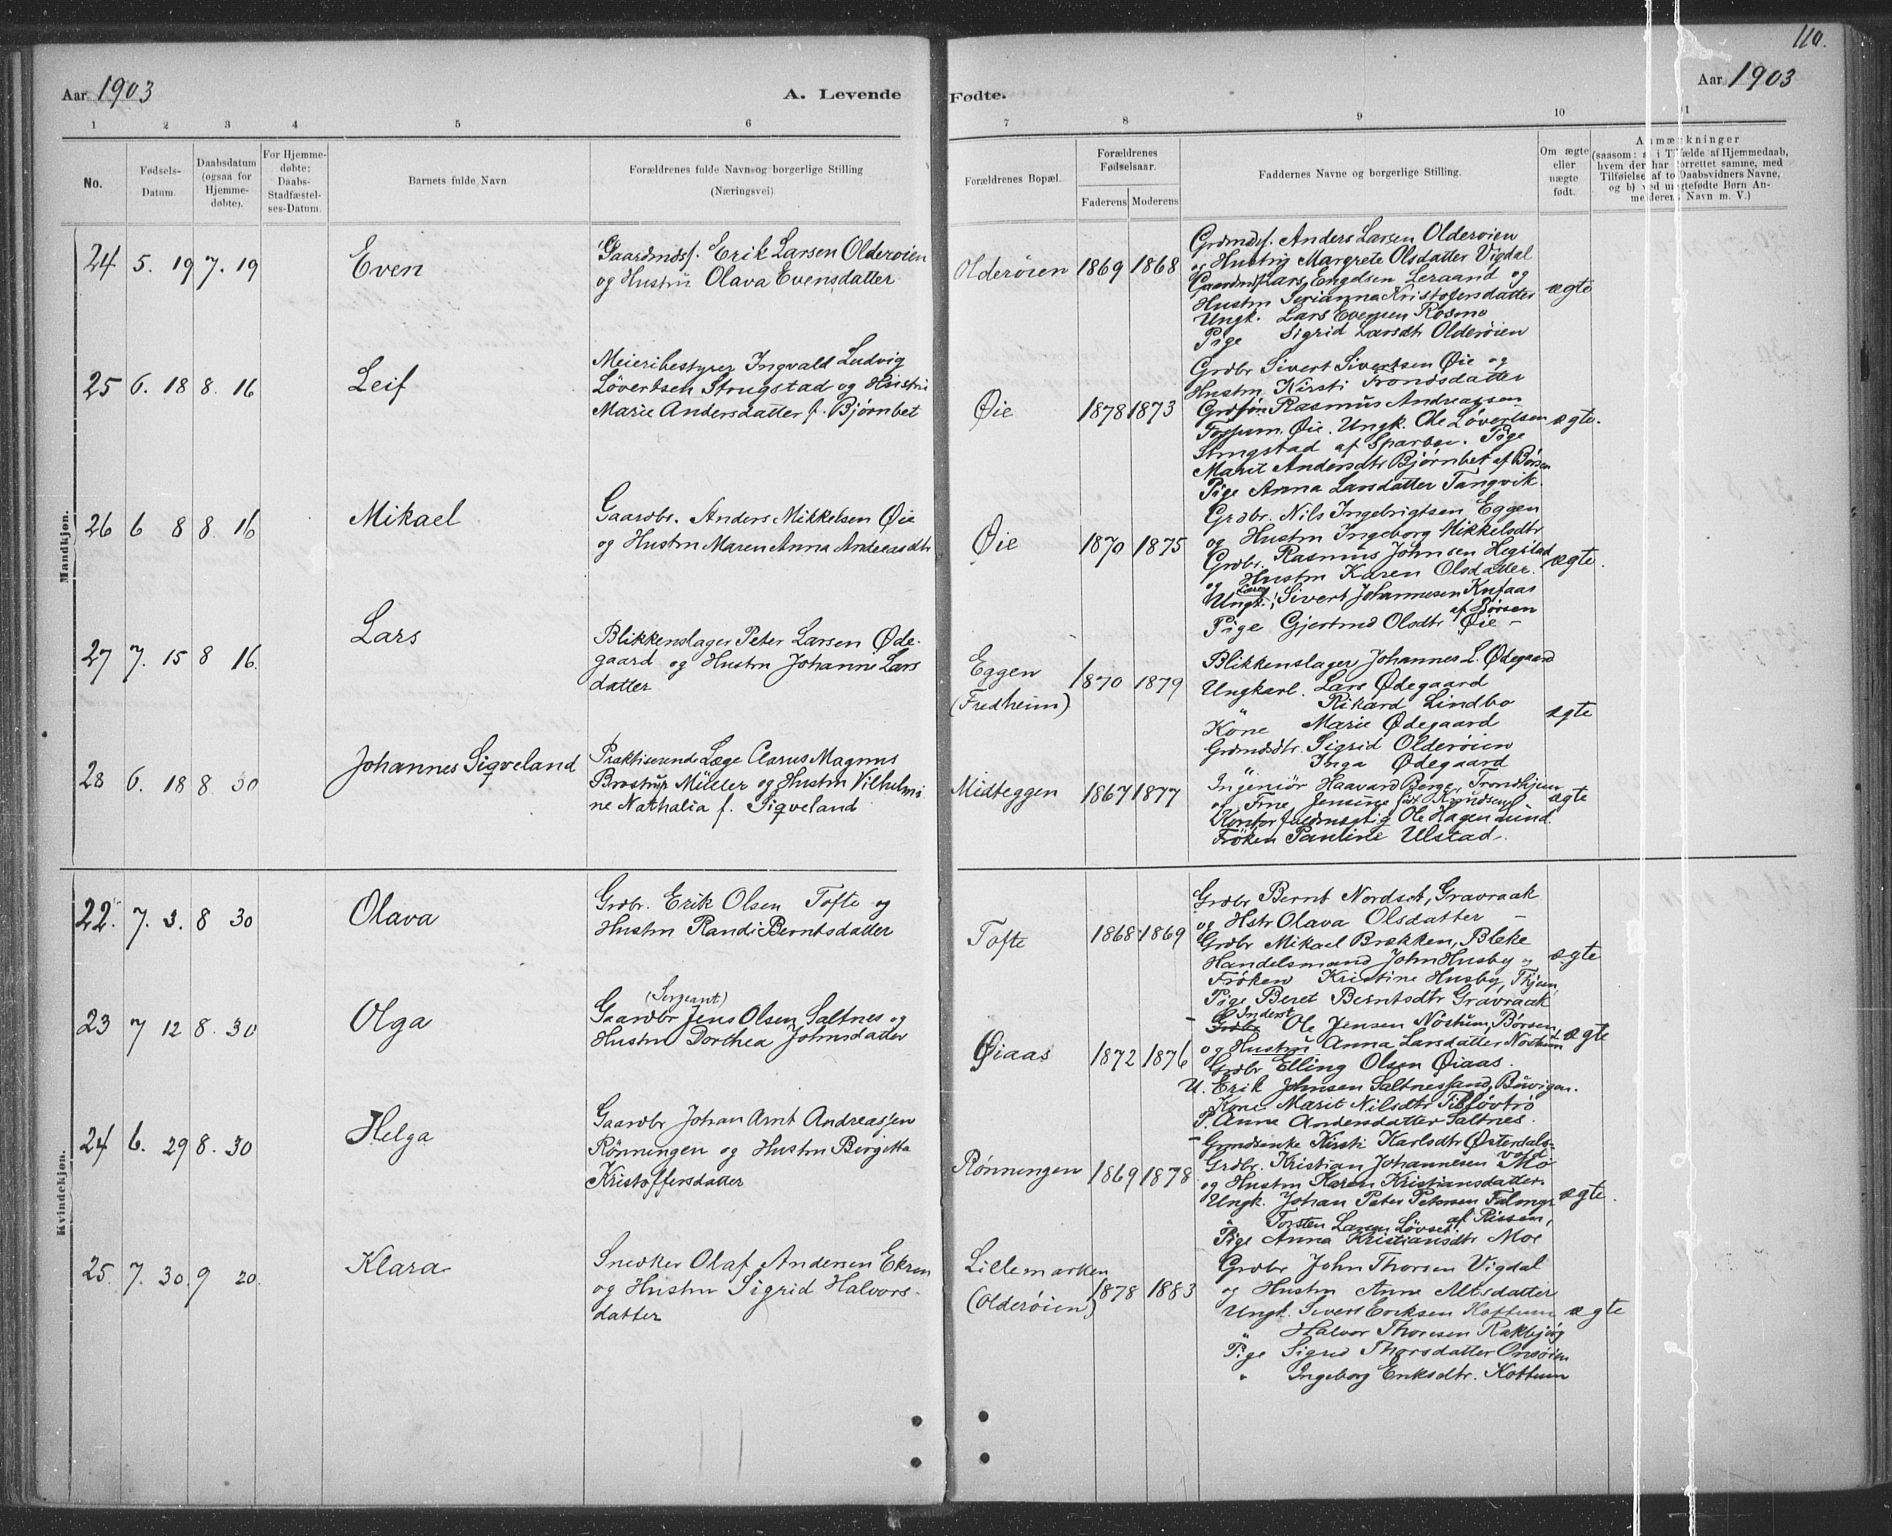 110.
Aar 1903
A. Levende
Fødte.
Aar 1903
1 2 3 4 5 6
7 8 9 10 11
No.
Fødsels-Datum.
Daabsdatum (ogsaa for Hjemmedøbte).
For Hjemmedøbte: Daabs-Stadfæstelses-Datum.
Barnets fulde Navn
Forældrenes fulde Navn og borgerlige Stilling (Næringsvei).
Forældrenes Bopæl.
Forældrenes Fødselsaar.
Faderens Moderens
Faddernes Navne og borgerlige Stilling.
Om ægte eller uægte født.
Anmærkninger
(saasom: a) i Tilfælde af Hjemmedaab,
hvem der har forrettet samme, med
Tilføielse af to Daabsvidners Navne,
og b) ved uægtefødte Børn An-
melderens Navn m. V.)
Mandkjøn.
24 5. 19 7. 19
Even
Gaardmdsf. Erik Larsen Olderøien
og Hustru Olava Evensdatter
Olderøien
1869 1868
Grdmdsf. Anders Larsen Olderøien
og Hustru Margrete Olsdatter Vigdal
Gaardmdsf. Lars Engelsen Leraand og
Hustru Serianna Kristofersdatter
Ungk. Lars Evensen Rosmo
Pige Sigrid Larsdtr Olderøien
ægte
25 6. 18 8. 16
Leif
Meieribestyrer Ingvald Ludvig
Løvertsen Strugstad og Hustru
Marie Andersdatter f. Bjørnbet
Øie
1878 1873
Grdbr Sivert Sivertsen Øie og
Hustru Kirsti Trondsdatter
Grdsøn Rasmus Andreassen
Øie. Ungk. Ole Løvertsen
Strugstad af Sparbu. Pige
Marit Andersdtr Bjørnbet af Børsen
Pige Anna Larsdatter Tangvik.
ægte.
26 6 8 8. 16
Mikael
Gaardbr. Anders Mikkelsen Øie
og Hustru Maren Anna Andreasdtr
Øie
1870 1875
Grdbr. Nils Ingebrigtsen Eggen
og Hustru Ingeborg Mikkelsdtr
Grdbr. Rasmus Johnsen Hegstad
og Hustru Karen Olsdatter.
Ungk. Sivert Johannesen Knfaas
af Børsen
Pige Gjertrud Olsdtr Øie –
ægte.
27 7. 15 8 16.
Lars
Blikkenslager Peter Larsen Øde-
gaard og Hustru Johanne Lars
datter
Eggen
(Fredheim)
1870 1879
Blikkenslager Johannes L. Ødegaard
Ungkarl. Lars Ødegaard
Rikard Lindbo
Kone Marie Ødegaard
Grdmdsdtr. Sigrid Olderøien
Inga Ødegaard
ægte
28 6. 18 8. 30
Johannes Siqveland
Praktiserende Læge Clarus Magnus
Brostrup Müller og Hustru Vilhelmi
ne Nathalia f. Siqveland
Midteggen
1867 1877
Ingeniør Haavard Berge, Trondhjem
og Frue Jensine født Knudsen
Kontorfuldmægtig Ole Hagen Lund.
Frøken Pauline Ulstad.
ægte
Kvindekjøn.
22. 7. 3. 8 30
Olava
Grdbr. Erik Olsen Tofte og
Hustru Randi Berntsdatter
Tofte
1868 1869
Grdbr Bernt Nordset, Gravraak
og Hstr Olava Olsdatter –
Grdbr Mikael Brækken, Bleke
Handelsmand John Husby og
Frøken Kristine Husby, Thjem
Pige Beret Berntsdtr Gravraak
ægte
23 7 12 8. 30
Olga
(Sergeant)
Gaardbr Jens Olsen Saltnes og
Hustru Dorthea Johnsdatter
Øiaas
1872 1876
Inderst
Grdbr Ole Jensen Nostum, Børsen,
og Hustru Anna Larsdatter Nostum
Grdbr Elling Olsen Øiaas.
U. Erik Johnsen Saltnessand, Buvigen.
Kone Marit Nilsdtr
P. Anne Andersdatter Saltnes.
ægte
24 6. 29 8. 30
Helga
Gaardbr Johan Arnt Andreassen
Rønningen og Hustru Birgitta
Kristoffersdatter
Rønningen
1869 1878
– Grndsenke Kirsti Karlsdtr Østerdals-
vold
Grdbr. Kristian Johannesen Mo
og Hustru Karen Kristiansdatter.
Ungk. Johan Peter Petersen
af Rissen,
" Torsten Larsen Løvset,
Pige Anna Kristiansdtr Moe
ægte.
25. 7. 30. 9 20.
Klara
Snedker Olaf Andersen Ekren
og Hustru Sigrid Halvors-
datter
Lillemarken
(Olderøien)
1878 1883
Grdbr John Thorsen Vigdal
og Hustru Anne Alfsdatter
Ungk. Sivert Eriksen Kottum
" Halvor Thoresen Rakbjørg
Pige Sigrid Thorsdatter Onsøien
" Ingeborg Eriksdtr. Kottum
ægte